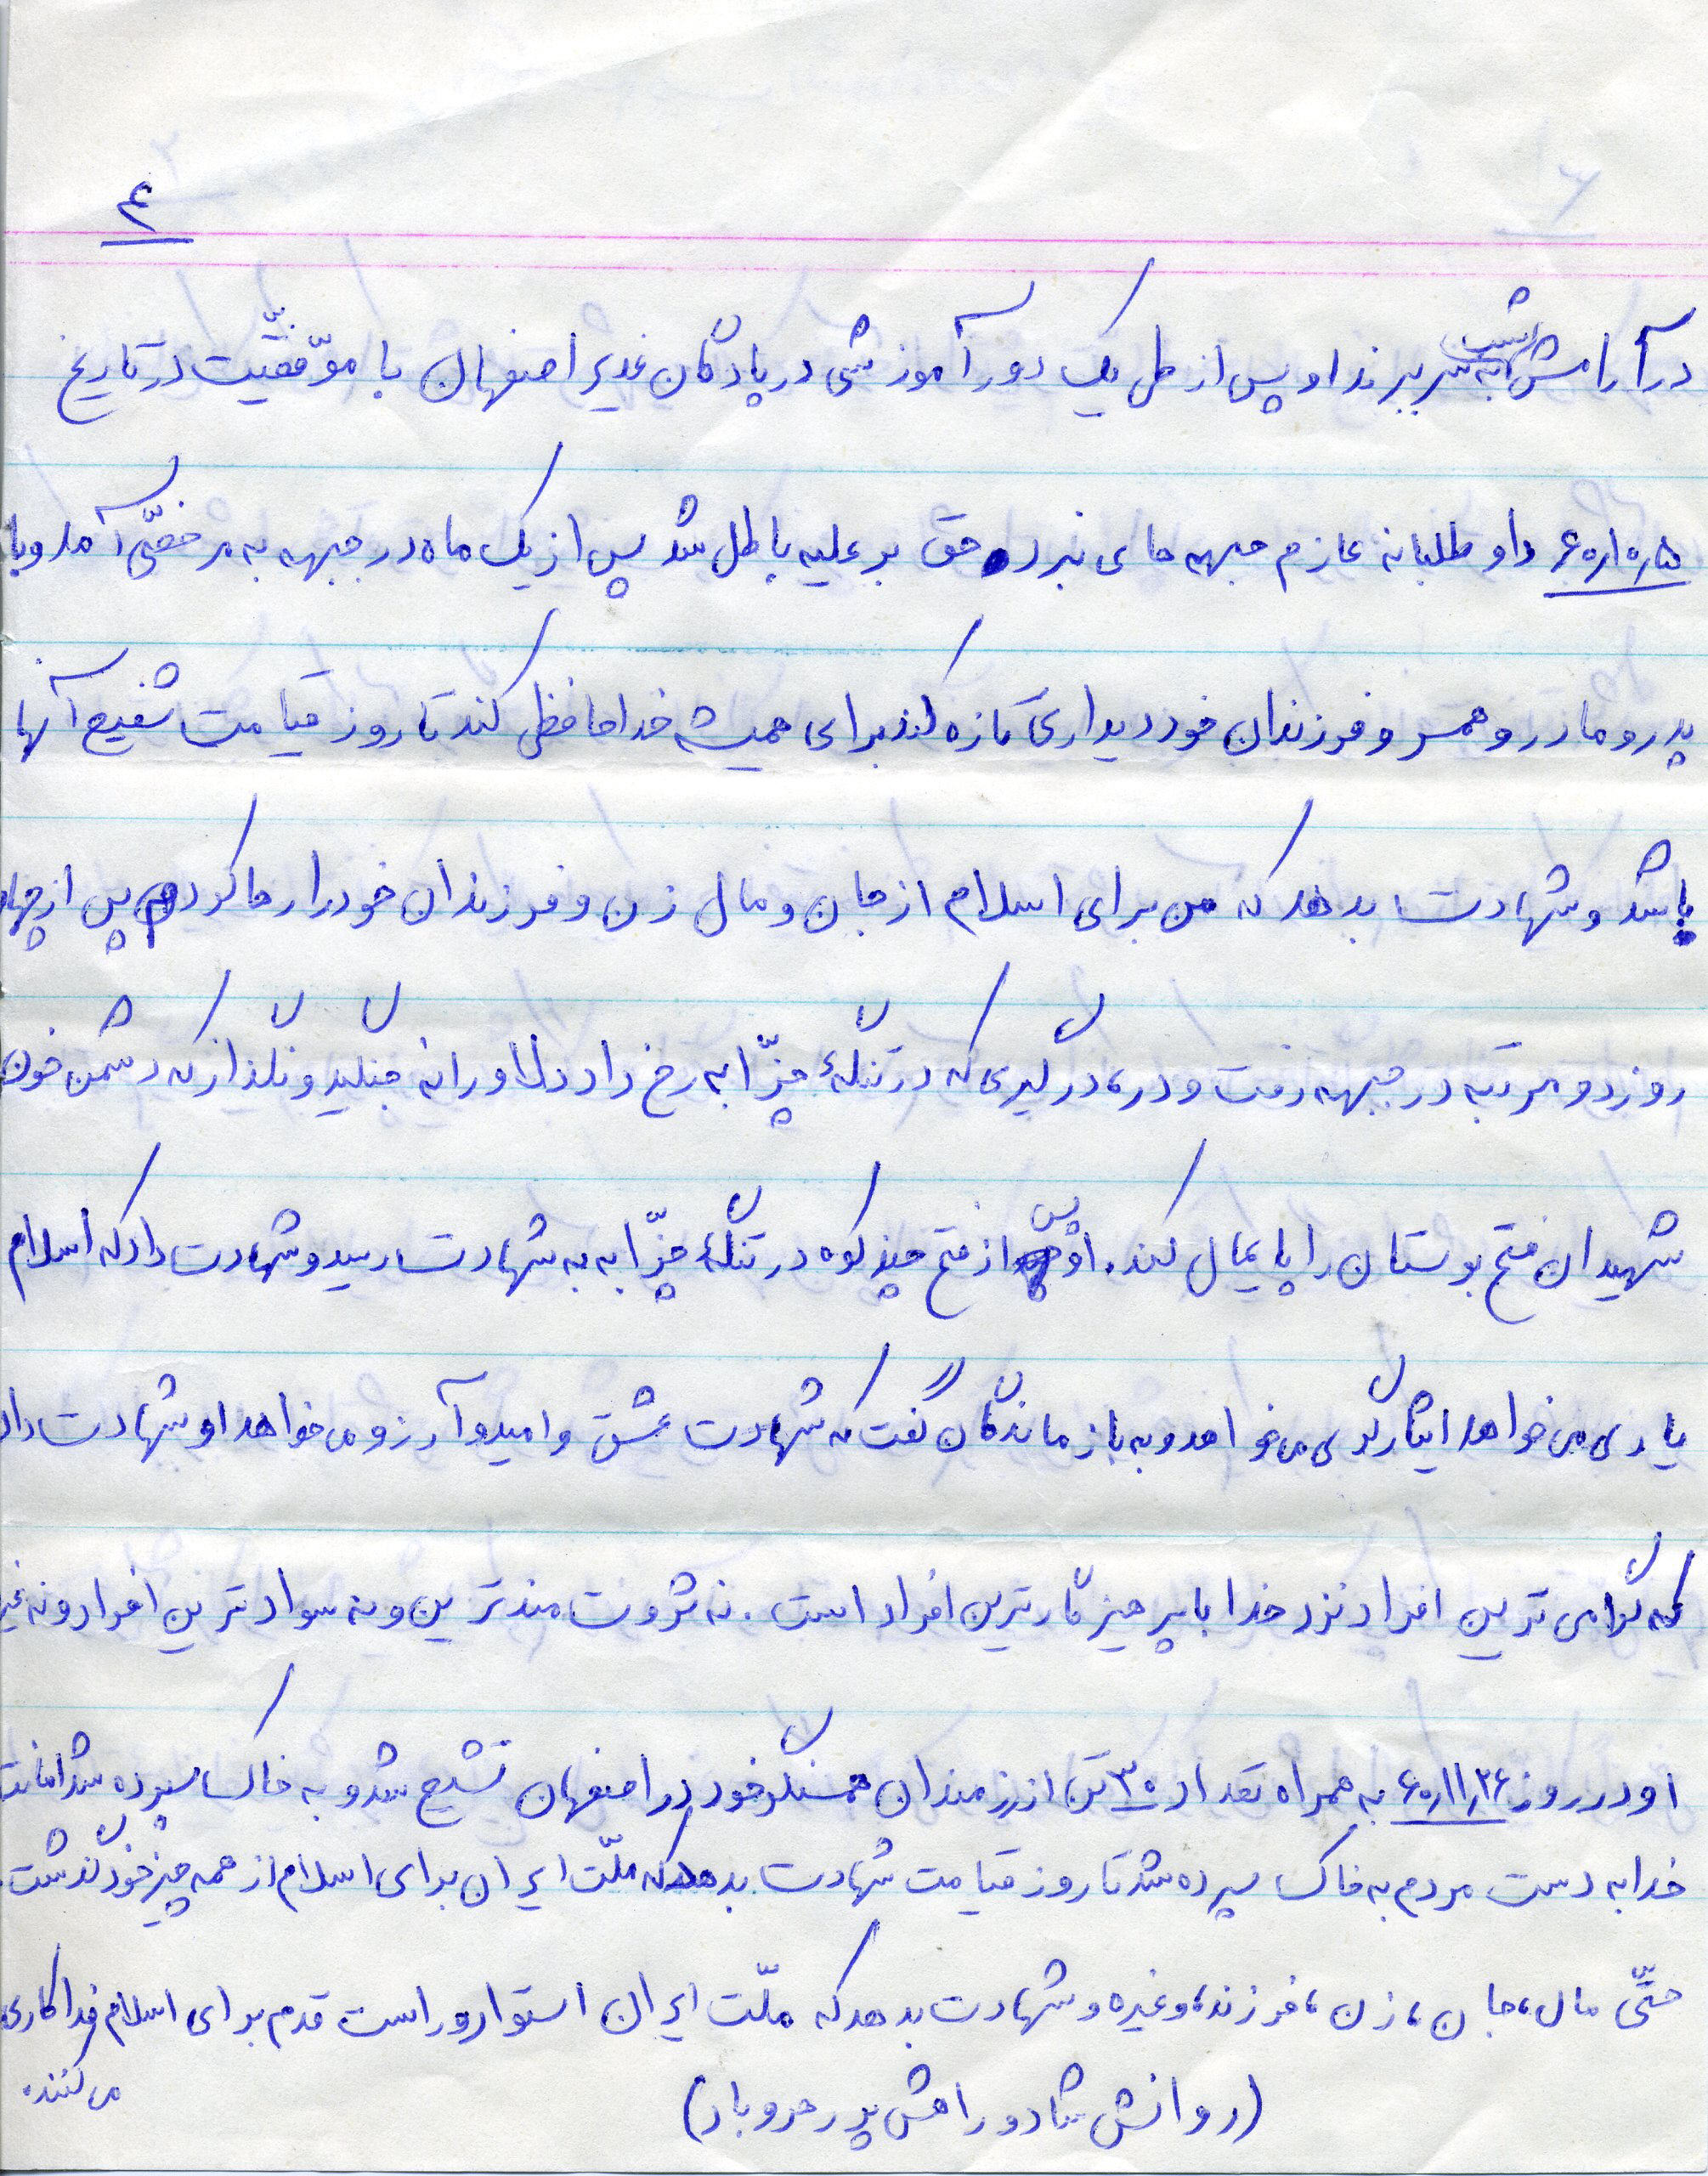 ۴
در آرامش شب به سر ببرند او پس از طی یک دور آموزشی در پادگان غدیر اصفهان با موّفقیّت در تاریخ
۶۰٫۱۰٫۵ داوطلبانه عازم جبهه های نبرد حق بر علیه باطل شد پس از یک ماه در جبهه به مرخصّی آمد و با
پدر و مادر و همسر و فرزندان خود دیداری تازه کند برای همیشه خداحافظی کند تا روز قیامت شفیع آنها
باشد و شهادت بدهد که من برای اسلام از جان و مال زن و فرزندان خود را رها کردم پس از چهار
روز دو مرتبه در جبهه رفت و در، درگیری که در تنگهٔ چزّابه رخ داد دلاورانه جنگید و نگذار که دشمن خون
شهیدان فتح بوستان را پایمال کند. او پس از فتح چند کوه در تنگهٔ چزّابه به شهادت رسید و شهادت داد که اسلام
یاری می خواهد ایثارگری می خواهد و به بازماندگان گفت که شهادت عشق و امید و آرزو می خواهد او شهادت داد
که گرامی ترین افراد نزد خدا با پرهیزگارترین افراد است . نه ثروت مندترین و نه سوادترین افراد و نه غیر
او در روز ۶۰٫۱۱٫۲۶ به همراه تعداد ۳۰ تن از رزمندان همسنگر خود در اصفهان تشیع شد و به خاک سپرده شد امانت
خدا به دست مردم به خاک سپرده شد تا روز قیامت شهادت بدهد که ملّت ایران برای اسلام از همه چیز خود گذشت.
حتّی مال، جان، زن، فرزند، و غیره و شهادت بدهد که ملّت ایران استوار و راست قدم برای اسلام فداکاری
می کنند.
(روانش شاد و راهش پر رهرو باد)